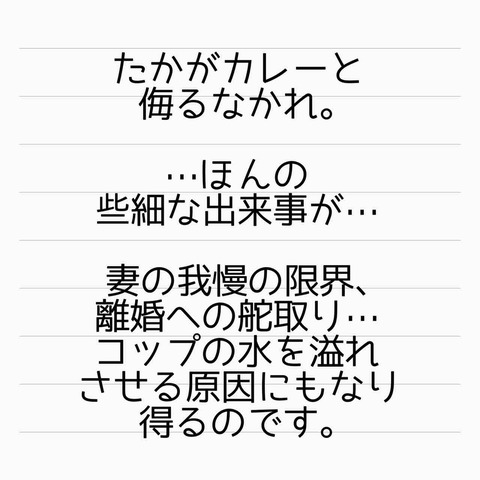 たかがカレーと
侮るなかれ。
…ほんの
些細な出来事が…
妻の我慢の限界、
離婚への舵取り…
コップの水を溢れ
させる原因にもなり
得るのです。